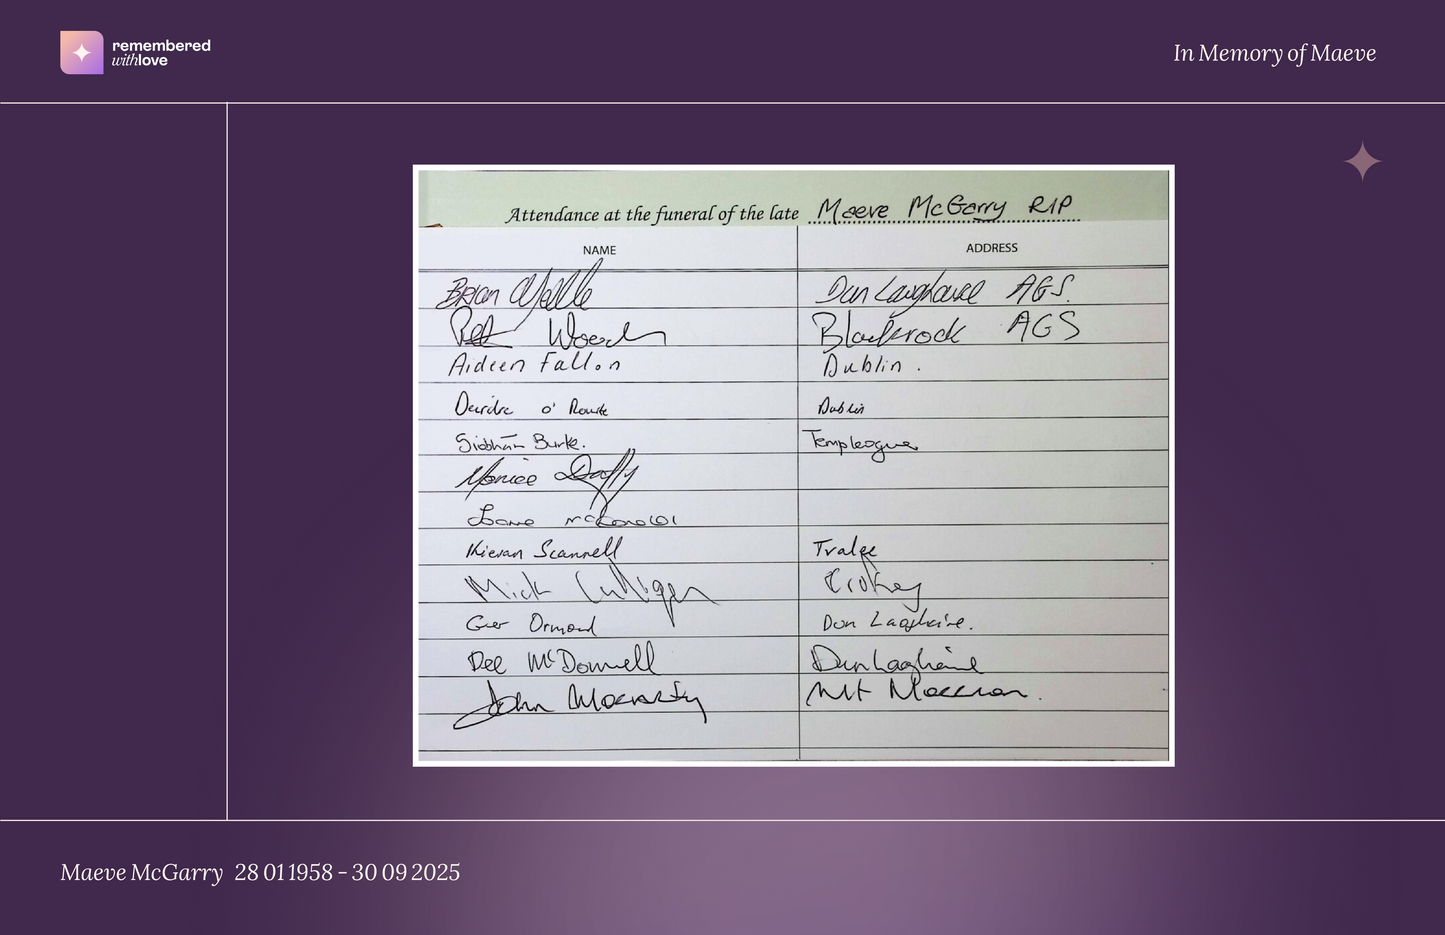 remembered
withlove
In Memory of Maeve
Attendance at the funeral of the late Maeve McGarry RIP
NAME ADDRESS
Brian Dun Laoghaire AGS.
Pat Woods Blackrock AGS
Aideen Fallon Dublin.
Deirdre o' Rourke Dublin
Siobhán Burke. Templeogue
Monica Duffy
Kieran Scannell Tralee
Mick Culligan
Ger Ormond Dun Laoghaire.
Dee McDonnell Dun Laoghaire
John Moriarty Mt Merrion.
Maeve McGarry 28 01 1958 - 30 09 2025